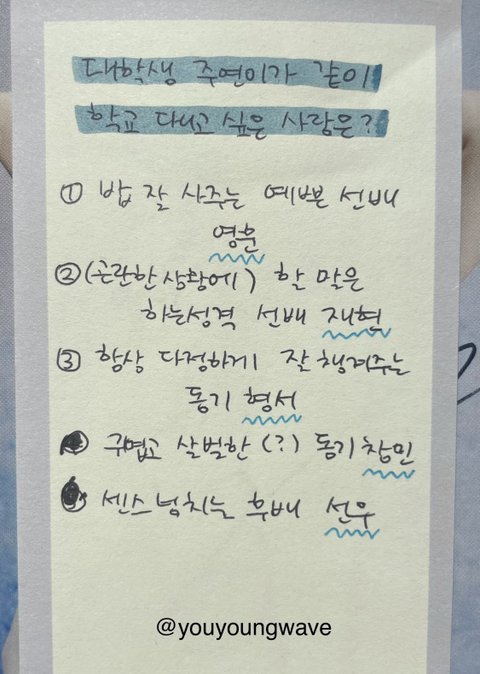 대학생 주연이가 같이
학교 다니고 싶은 사람은?
① 밥 잘 사주는 예쁜 선배
영훈
② (곤란한 상황에) 할 말은
하는성격 선배 재현
③ 항상 다정하게 잘 챙겨주는
동기 형서
귀엽고 살벌한 (?) 동기 창민
센스 넘치는 후배 선우
@youyoungwave